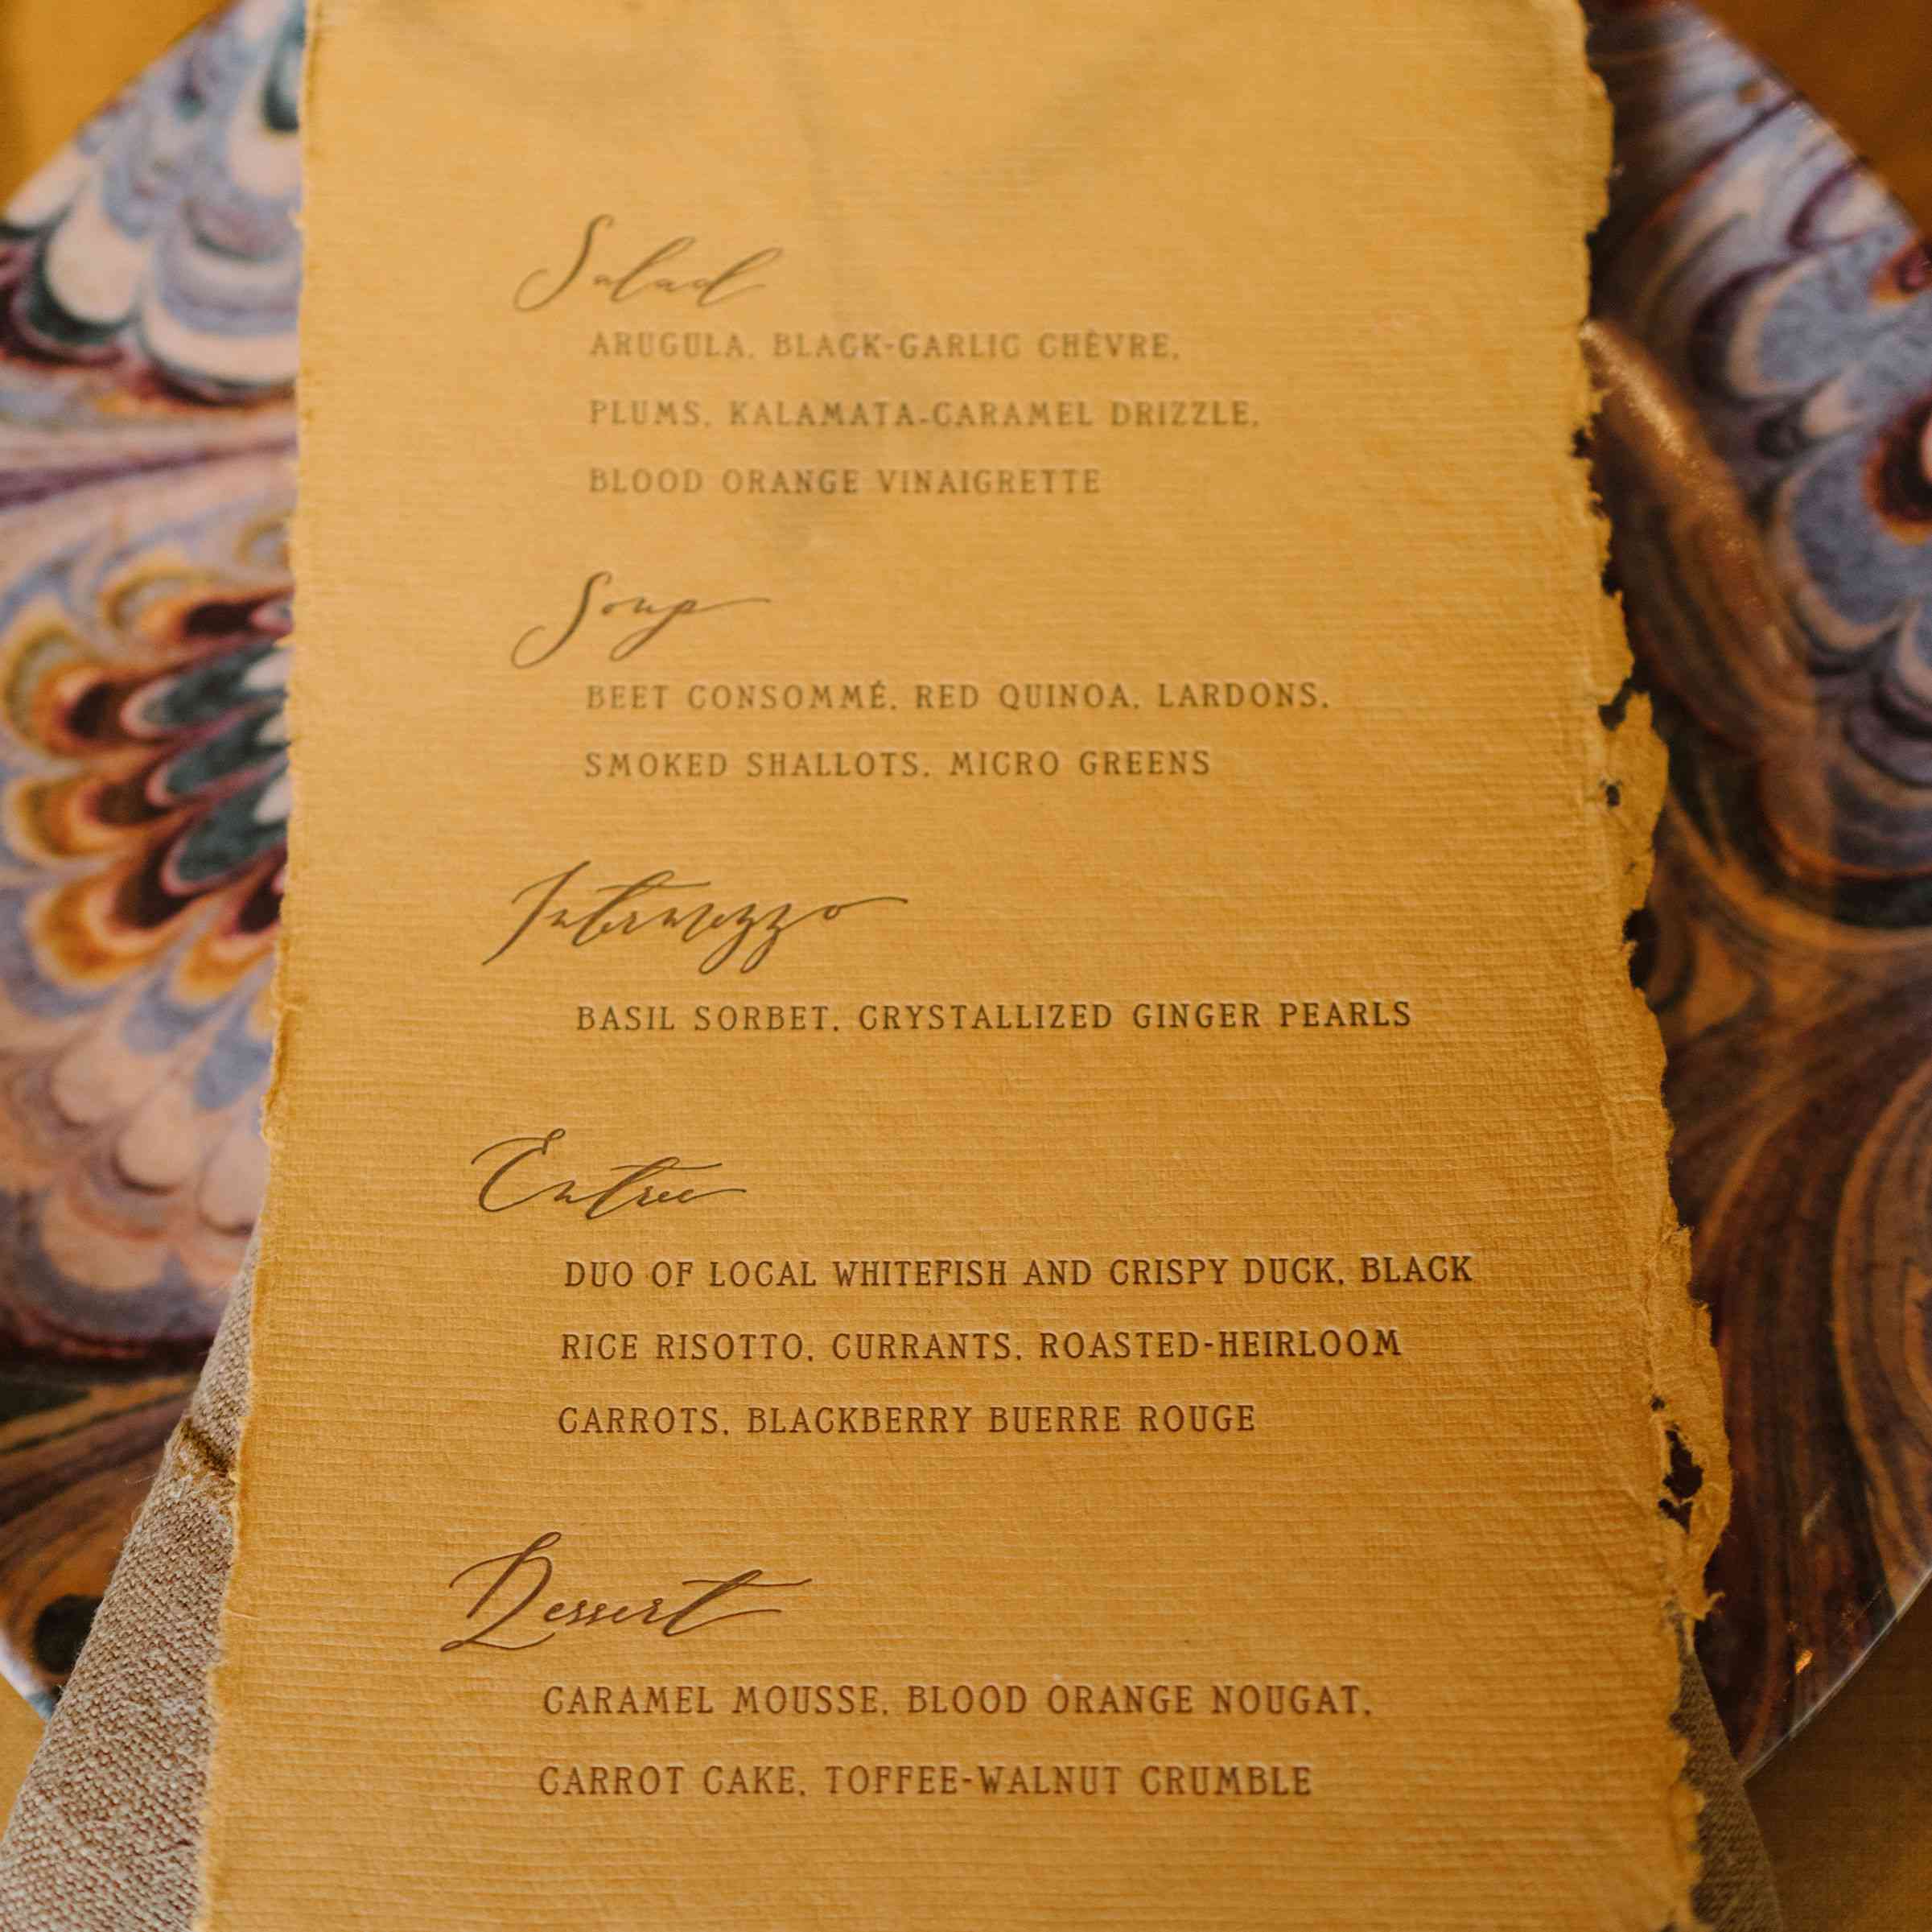 Salad
ARUGULA, BLACK-GARLIC CHÈVRE,
PLUMS, KALAMATA-CARAMEL DRIZZLE,
BLOOD ORANGE VINAIGRETTE
Soup
BEET CONSOMMÉ, RED QUINOA, LARDONS,
SMOKED SHALLOTS, MICRO GREENS
Intermezzo
BASIL SORBET, CRYSTALLIZED GINGER PEARLS
Entree
DUO OF LOCAL WHITEFISH AND CRISPY DUCK, BLACK
RICE RISOTTO, CURRANTS, ROASTED-HEIRLOOM
CARROTS, BLACKBERRY BUERRE ROUGE
Dessert
CARAMEL MOUSSE, BLOOD ORANGE NOUGAT,
CARROT CAKE, TOFFEE-WALNUT CRUMBLE